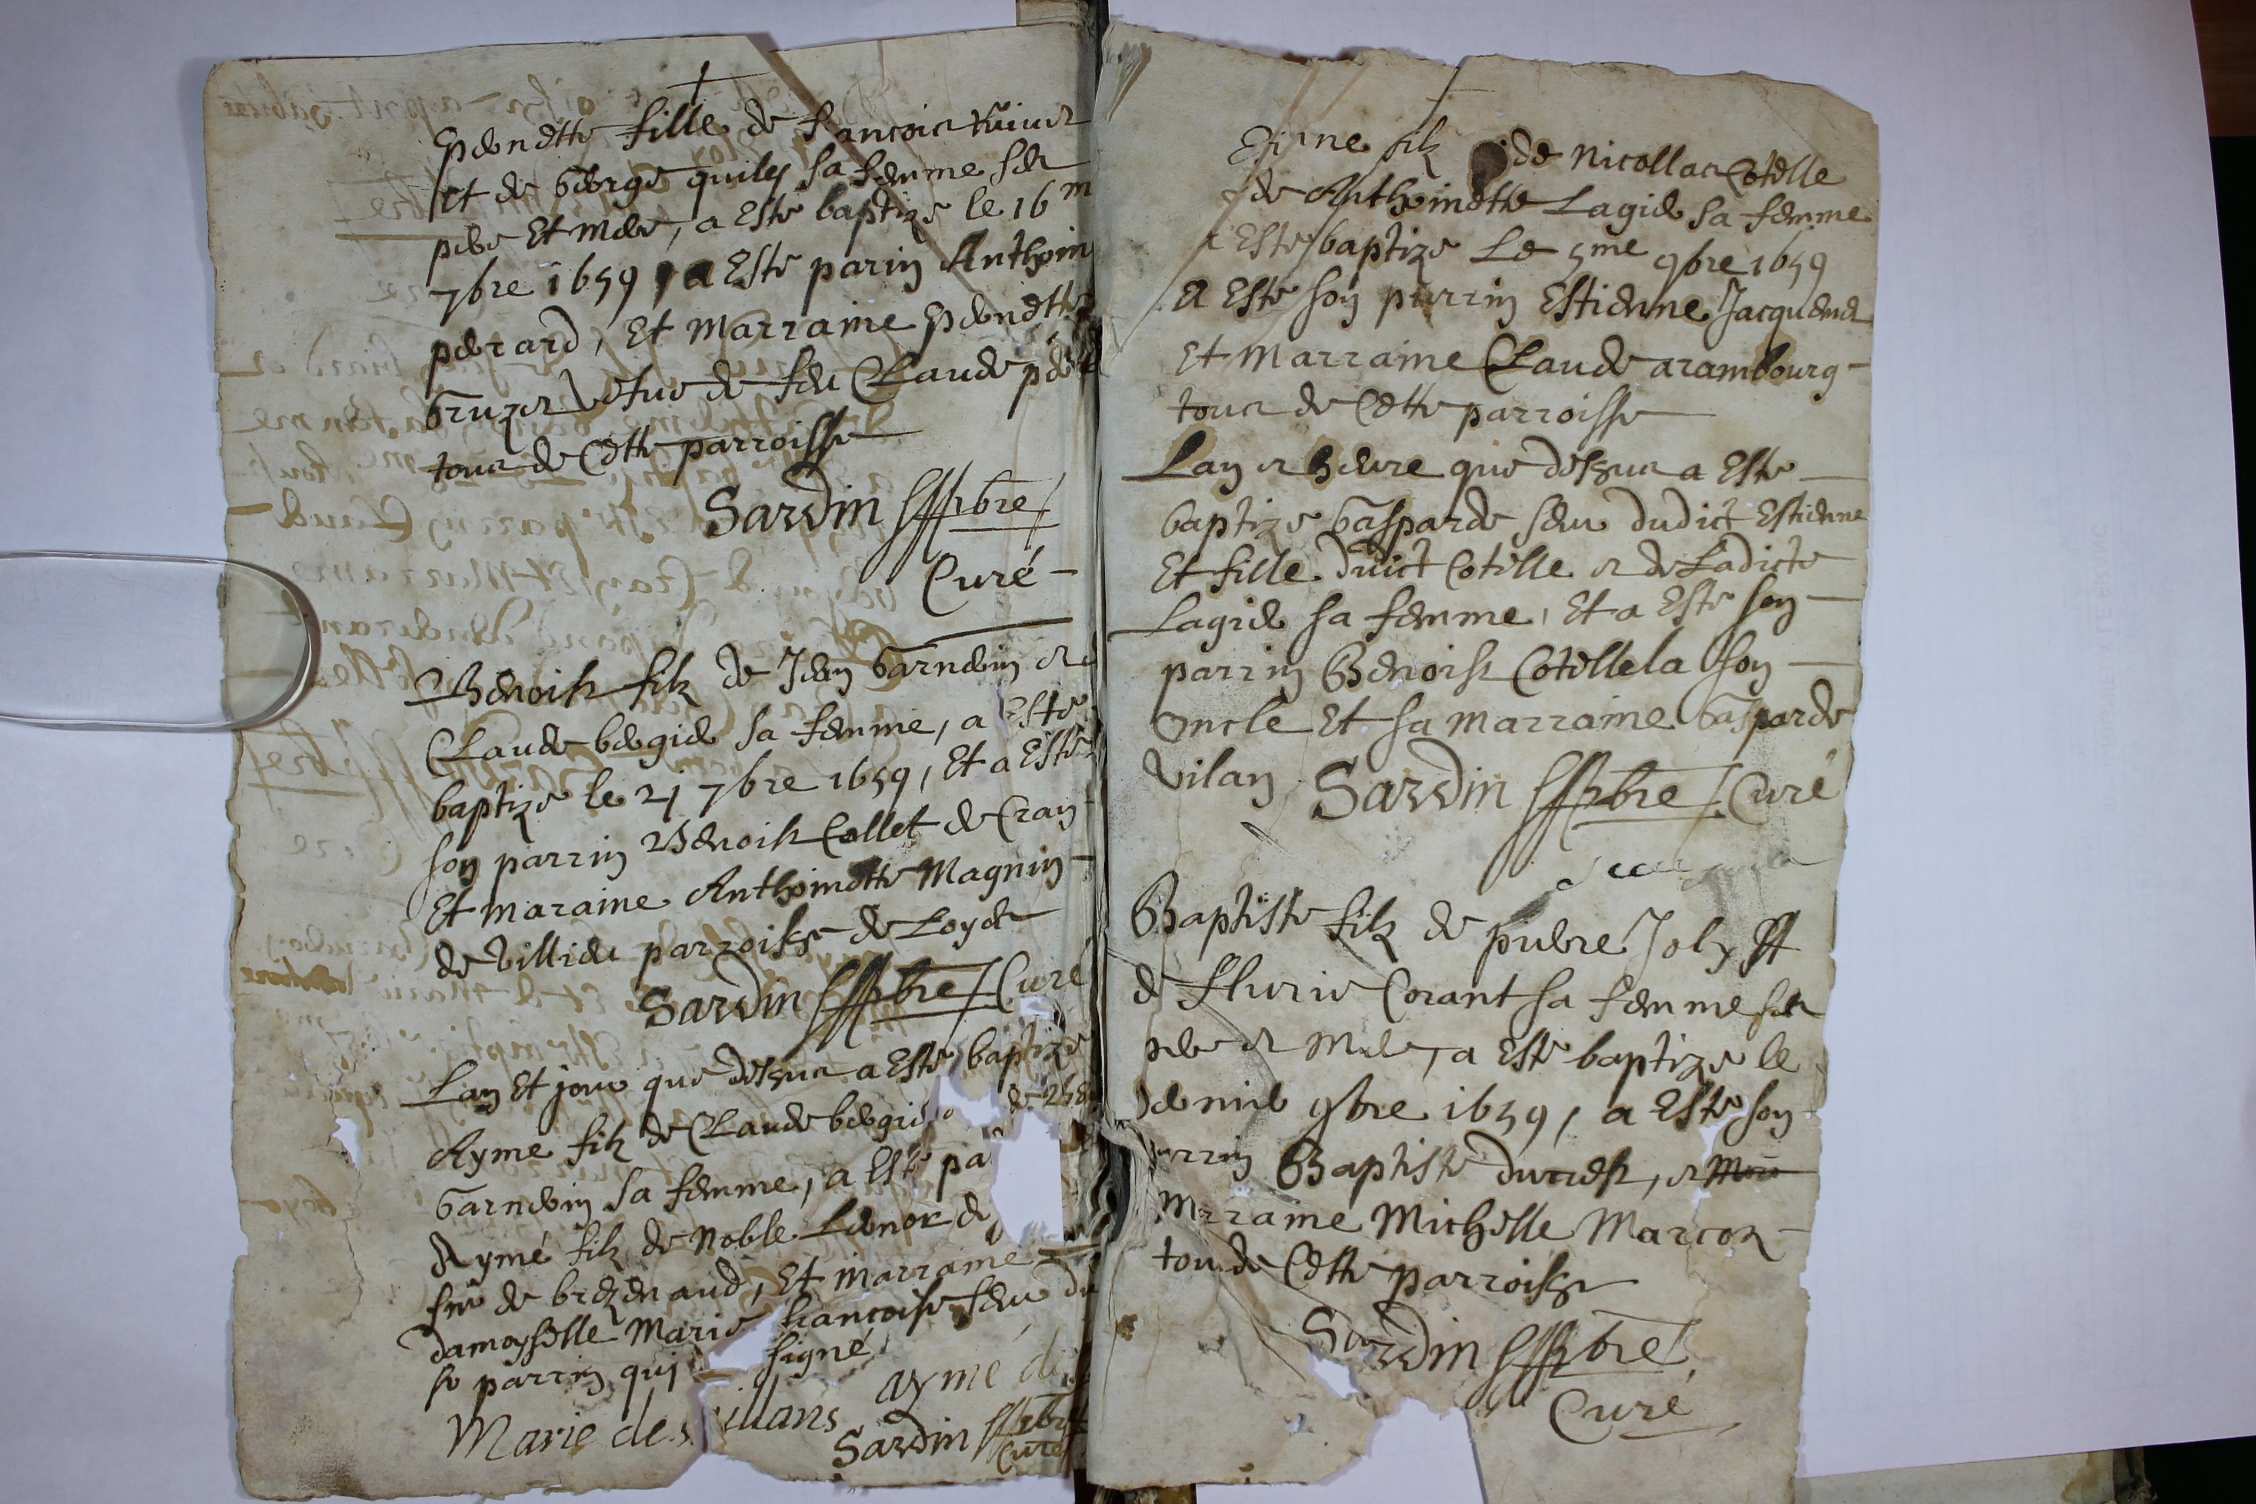 fille de francois
Et de George quily sa femme ses
pere Et Mere, a Este baptize le 16 m
7bre 1659, a Este parin Anthoin
perard, Et Marraine
vefue de feu Claude
tous de Cette parroisse
Sardin pbre
Curé
Benoist filz de Jean Garndin et
Claude begid sa femme, a Este
baptize le 21 7bre 1659, Et a Este
son parrin Benoist Collet de Cran
Et maraine Anthoinette Magnin
de villieu parroisse de Loyes
Sardin pbre Curé
Lan Et jour que dessus a Este baptize
Ayme filz de Claude
sa femme, a Este pa
Aymé filz de Noble Lienor de
de brezenaud, Et marraine
damoyselle Marie francoise seur du
parrin qui signé
Marie de illans aymé de
Sardin pbre
Curé
Etienne filz de Nicollas Cotelle
de Anthoinette Lagid sa femme
a Este baptize Le 5me 9bre 1659
a Este son parrin Estienne Jacquemet
Et Marraine Claude arambourg
tous de Cette parroisse
Lan et heure que dessus a Este
baptize Gasparde seur dudict Estienne
Et fille duict Cotelle et de Ladicte
Lagid sa femme, Et a Este son
parrin Benoist Cotelle la son
oncle Et sa marraine Gasparde
vilan Sardin pbre Curé
Baptiste filz de pierre Joly Et
de flurie Corant sa femme ses
pere et Mere, a Este baptize le
dernier 9bre 1659, a Este son
parrin Baptiste ducrest, et
Marraine Michelle Marcon
tous de Cette parroisse
Sardin pbre
Curé